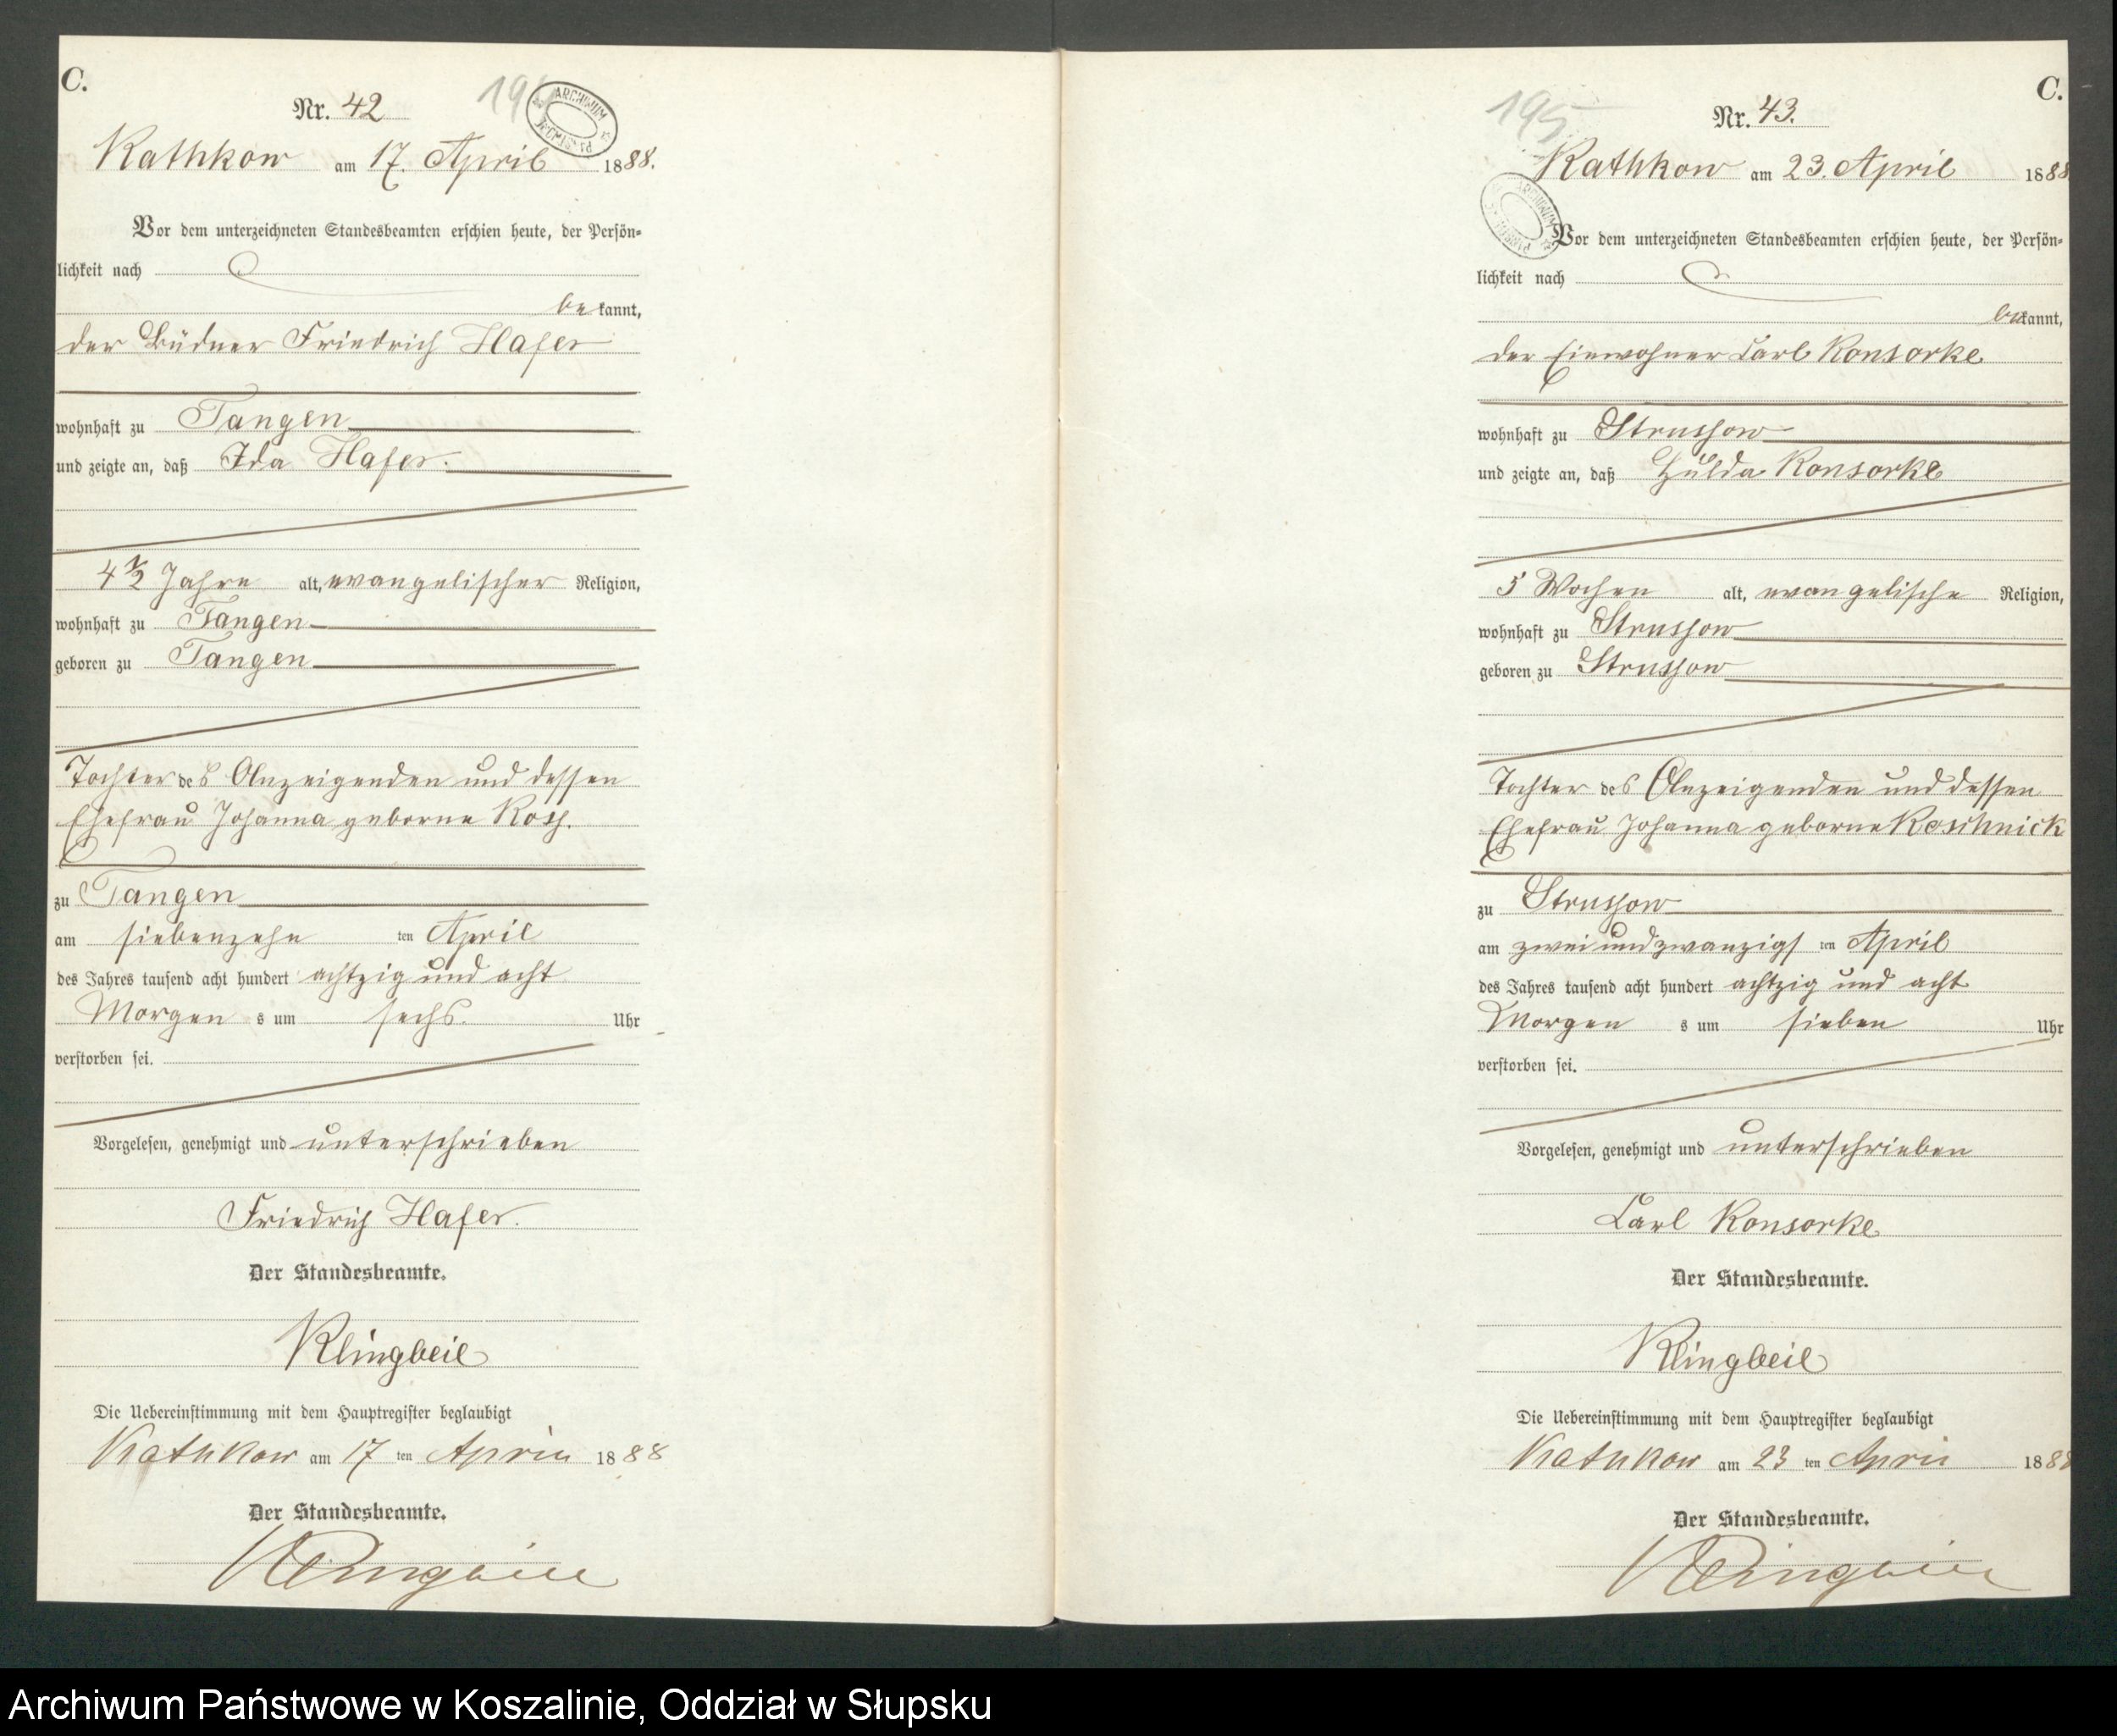 C.
Nr. 42
ARCHIWUM
Kathkow am 17. April 1888.
Vor dem unterzeichneten Standesbeamten erschien heute, der Persön-
lichkeit nach
bekannt,
der Büdner Friedrich Hafer
wohnhaft zu Tangen
und zeigte an, daß Ida Hafer.
4 1/2 Jahre alt, evangelischer Religion,
wohnhaft zu Tangen
geboren zu Tangen
Tochter des Anzeigenden und dessen
Ehefrau Johanna geborne
zu Tangen
am siebenzehn ten April
des Jahres tausend acht hundert achtzig und acht
Morgens um sechs. Uhr
verstorben sei.
Vorgelesen, genehmigt und unterschrieben
Friedrich Hafer.
Der Standesbeamte.
Klingbeil
Die Uebereinstimmung mit dem Hauptregister beglaubigt
Kathkow am 17 ten April 1888
Der Standesbeamte.
Klingbeil
C.
195
Nr. 43.
Kathkow am 23. April 1888
ARCHIWUM
Vor dem unterzeichneten Standesbeamten erschien heute, der Persön-
lichkeit nach
bekannt,
der Einwohner Carl Konsorke
wohnhaft zu Strussow
und zeigte an, daß Hulda Konsorke
5 Wochen alt, evangelische Religion,
wohnhaft zu Strussow
geboren zu Strussow
Tochter des Anzeigenden und dessen
Ehefrau Johanna geborne Koschnick
zu Strussow
am zwei und zwanzigs ten April
des Jahres tausend acht hundert achtzig und acht
Morgens um sieben Uhr
verstorben sei.
Vorgelesen, genehmigt und unterschrieben
Carl Konsorke
Der Standesbeamte.
Klingbeil
Die Uebereinstimmung mit dem Hauptregister beglaubigt
Kathkow am 23 ten April 1888
Der Standesbeamte.
Klingbeil
Archiwum Państwowe w Koszalinie, Oddział w Słupsku